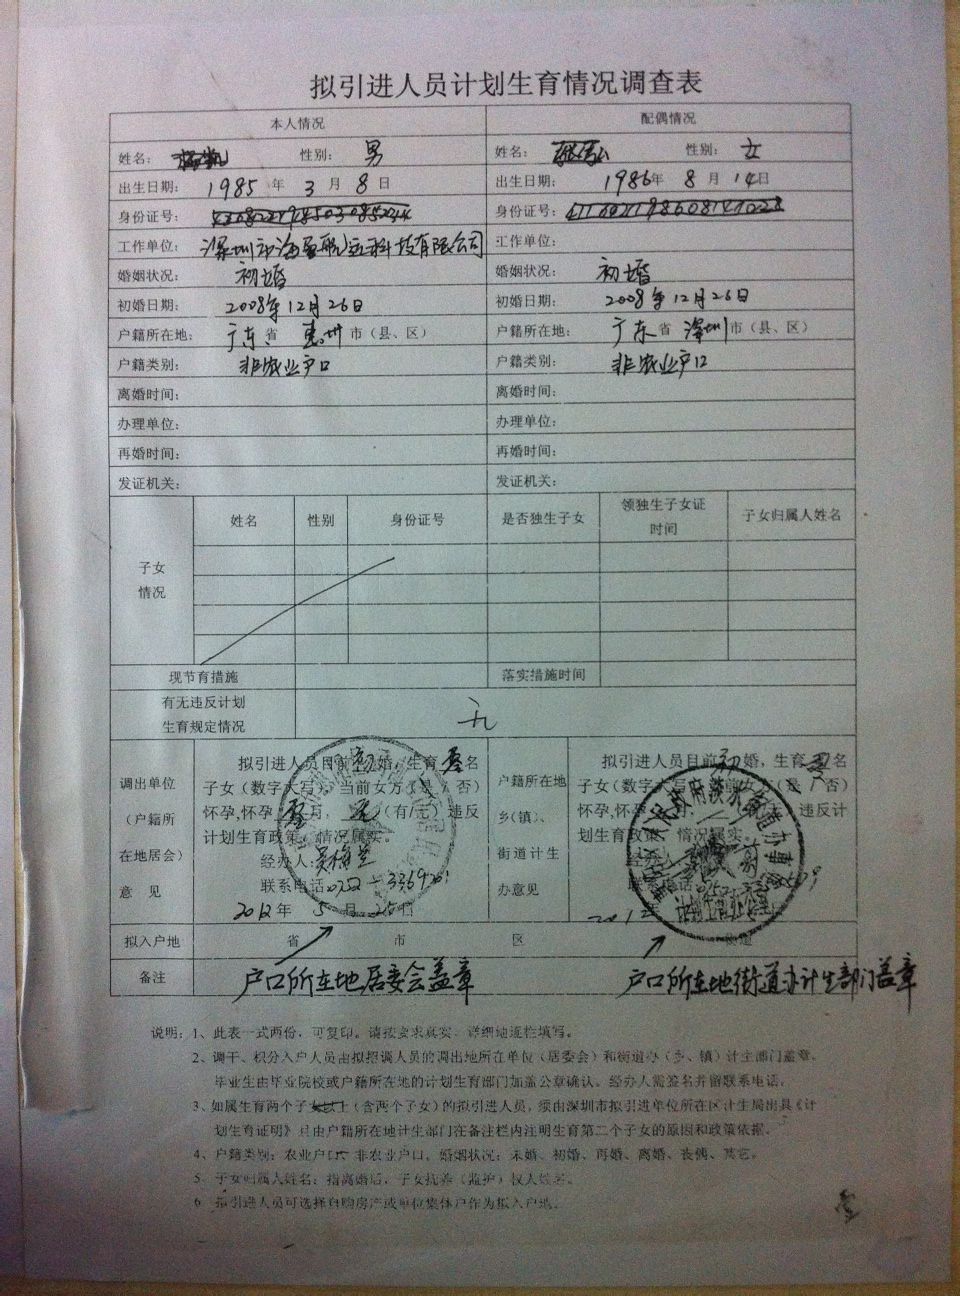 拟引进人员计划生育情况调查表
本人情况 配偶情况
姓名： 性别： 男 姓名： 性别： 女
出生日期： 1985 年 3 月 8 日 出生日期： 1986年 8 月 14日
身份证号： 身份证号：
工作单位： 深圳市海盈航远科技有限公司 工作单位：
婚姻状况： 初婚 婚姻状况： 初婚
初婚日期： 2008年12月26日 初婚日期： 2008年12月26日
户籍所在地： 广东 省 惠州 市（县、区） 户籍所在地： 广东 省 深圳 市（县、区）
户籍类别： 非农业户口 户籍类别： 非农业户口
离婚时间： 离婚时间：
办理单位： 办理单位：
再婚时间： 再婚时间：
发证机关： 发证机关：
子女情况 姓名 性别 身份证号 是否独生子女 领独生子女证时间 子女归属人姓名
现节育措施 落实措施时间
有无违反计划生育规定情况 无
调出单位（户籍所在地居会）意 见
拟引进人员目前初婚，生育 名
子女（数字大写），当前女方（是／否）
怀孕,怀孕 月， 无（有/无）违反
计划生育政策，情况属实。
经办人：
联系电话：0752－
2012年 5 月 日
户籍所在地乡(镇)、街道计生办意见
拟引进人员目前初婚，生育 名
子女（数字大写），当前女方（是／否）
怀孕,怀孕 月， （有/无）违反计
划生育政策，情况属实。
经办人
联系电话：0752
拟入户地 省 市 区 街道
备注 户口所在地居委会盖章 户口所在地街道办计生部门盖章
说明：1、此表一式两份，可复印。请按要求真实、详细地逐栏填写。
2、调干、积分入户人员由拟招调人员的调出地所在单位（居委会）和街道办（乡、镇）计生部门盖章。
毕业生由毕业院校或户籍所在地的计划生育部门加盖公章确认。经办人需签名并留联系电话。
3、如属生育两个子女以上（含两个子女）的拟引进人员，须由深圳市拟引进单位所在区计生局出具《计
划生育证明》且由户籍所在地计生部门在备注栏内注明生育第二个子女的原因和政策依据。
4、户籍类别：农业户口、非农业户口。婚姻状况：未婚、初婚、再婚、离婚、丧偶、其它。
5、子女归属人姓名：指离婚后，子女抚养（监护）权人姓名。
6、拟引进人员可选择自购房产或单位集体户作为拟入户地。